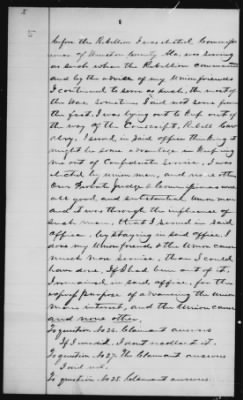 before the Rebellion I was elected Commissioner
of Winston County Ala, was serving
as such when the Rebellion commenced
and by the advice of my Union friends
I continued to serve as such, the most of
the War. Sometimes I did not serve from
the fact I was lying out to Keep out of
the way of the Conscript, Rebels Cavalry.
I served in said office thinking it
might be some advantage in Keeping
me out of Confederate Service, I was
elected by union men, and no other
Our Probate Judge & Commissioners was
all good and substantial Union men
and it was through the influence of
such men, that I served in said
office, by staying in said office, I
done my Union friends & the Union cause
much more service, than I could
have done, if I had been out of it.
I remained in said office, for the
express purpose of advancing the Union
interest, and the Union cause
and none other.
To question No 26. Claimant answers
If I was did, I dont recollect it.
To question No 27. The Claimant answers
I did not.
To question No 28. Claimant answers